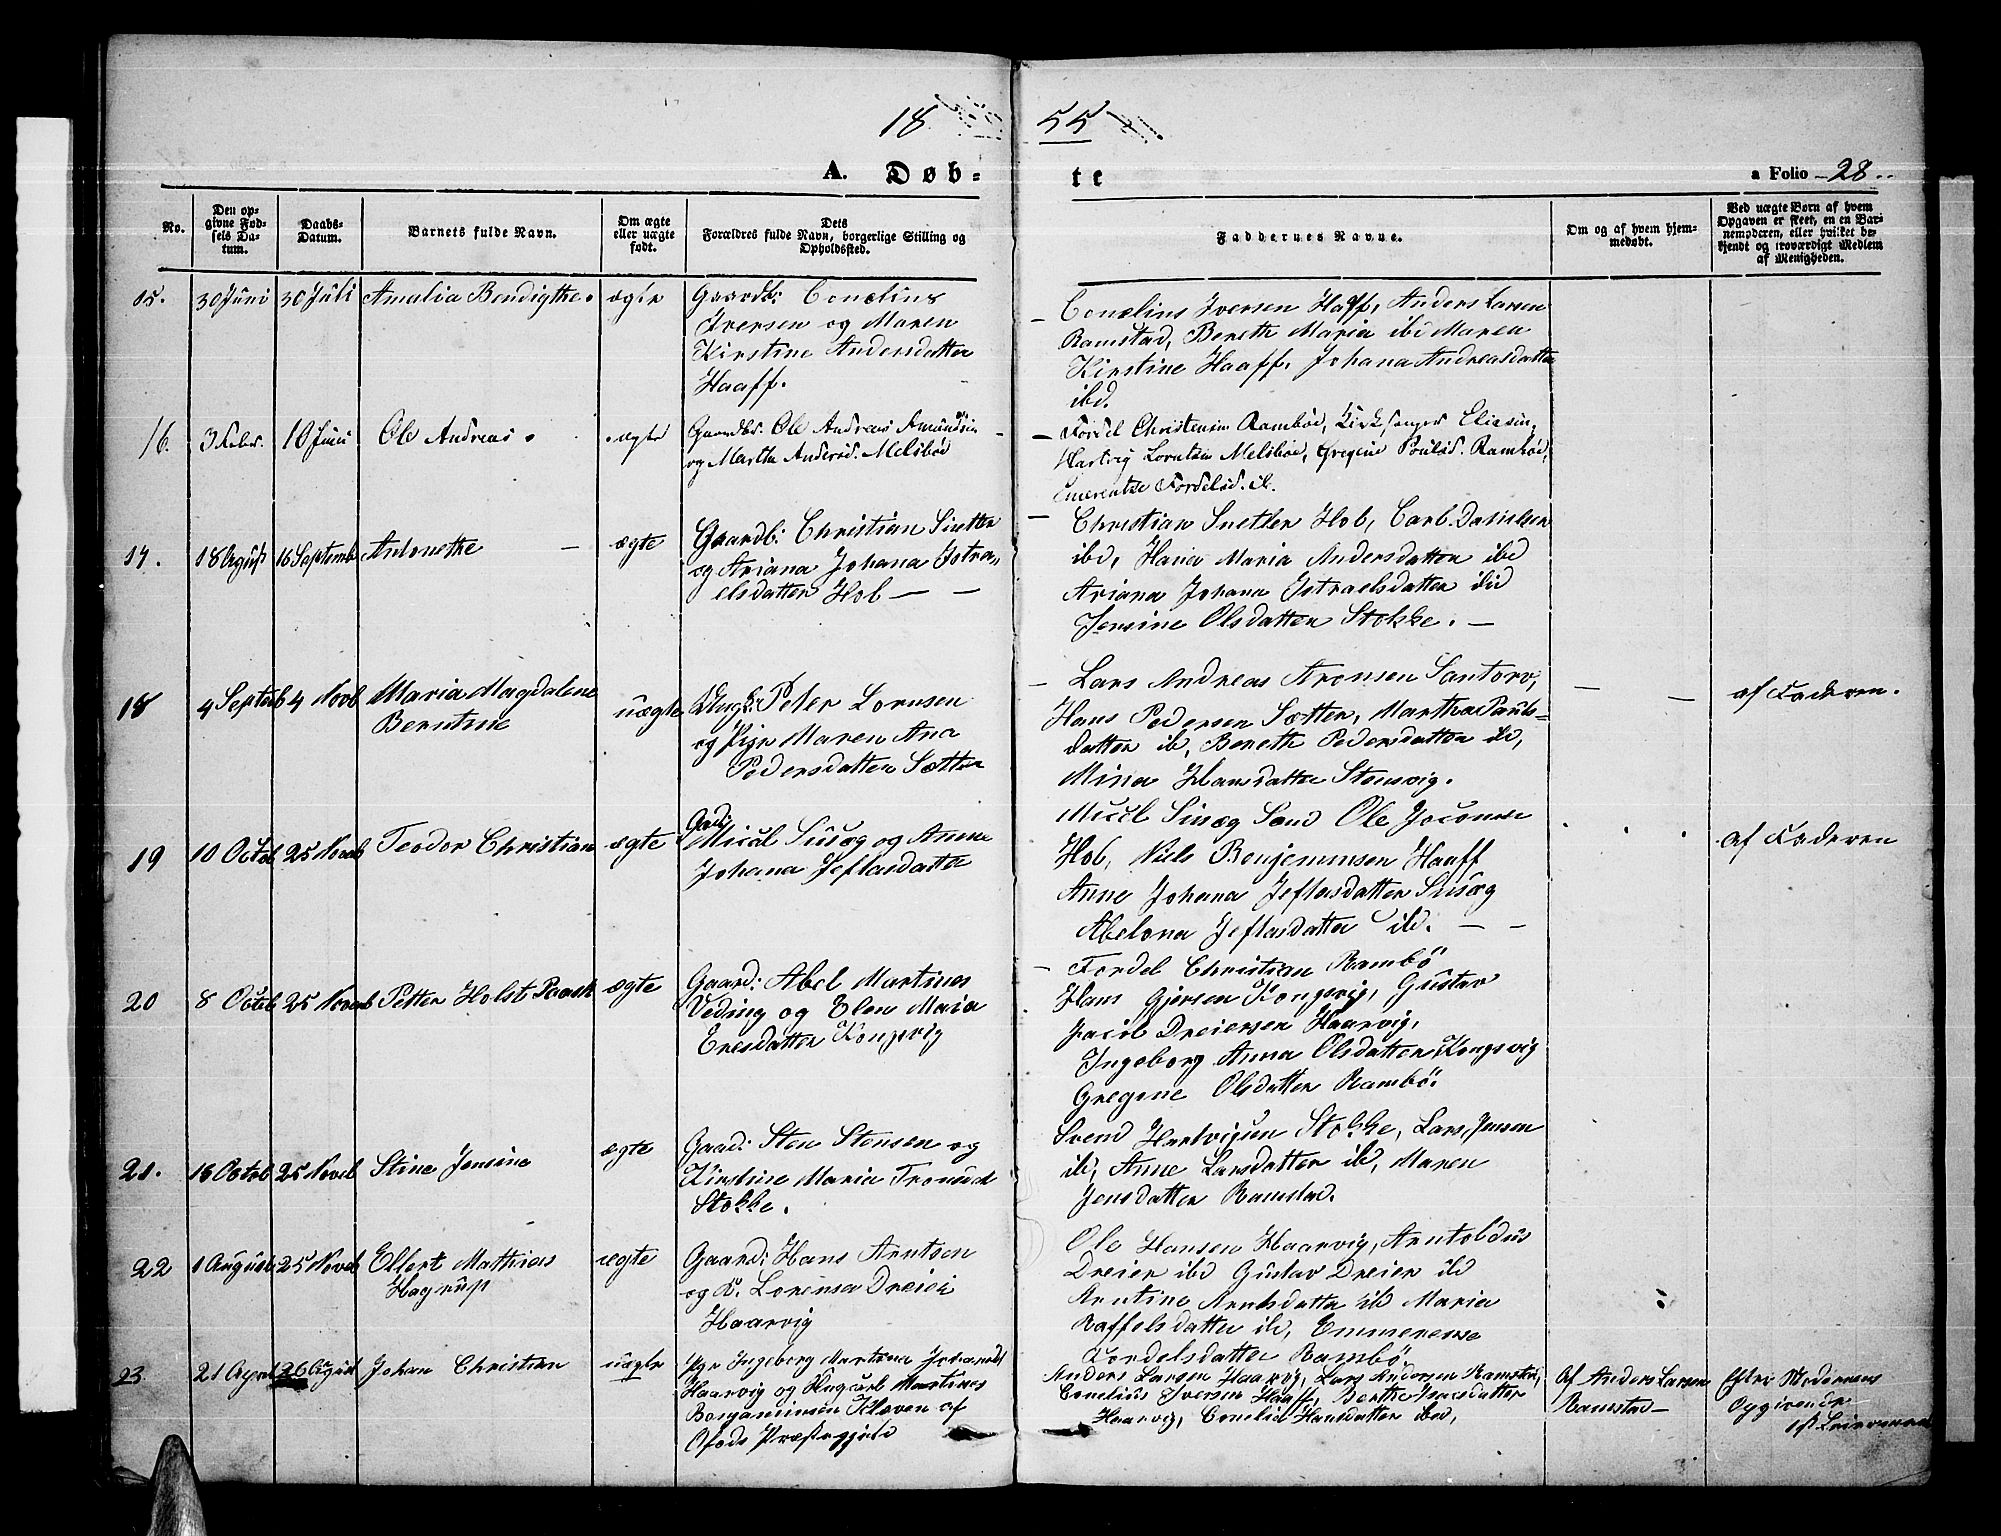 18 55
A. Døbte
a Folio 28.
No.
Den opgivne Fødsels Datum.
Daabs-Datum.
Barnets fulde Navn.
Om ægte eller uægte født.
Dets Forældres fulde Navn, borgerlige Stilling og Opholdssted.
Faddernes Navne.
Om og af hvem hjemmedøbt.
Ved uægte Børn af hvem Opgaven er skeet, en en Barnemoderen, eller hvilket bekjendt og troværdigt Medlem af Menigheden.
15. 30 Juni 30 Juli Amalia Bendigthe. ægte
Gaardb: Conelius
Iversen og Maren
Kirstine Andersdatter
Haaff.
Conelius Iversen Haaff, Anders Larsen
Ramstad, Bereth Maria ibd Maren
Kirstine Haaff, Johana Andreasdatter
ibd.
16. 3 Febr. 10 Juni Ole Andreas. ægte
Gaardbr. Ole Andreas
og Martha Andersd. Melsbøe
Fordel Christensen Rambøe, Kirkesanger Eliesen,
Hartvig Lorntsen Melsbøe, Gregine Poulsd. Rambøe,
Emerentse Fordelsd. ib.
17. 18 Agust 16 Septemb Antonethe ægte
Gaardb: Christian
og Ariana Johana Istra-
elsdatter Hol
Christian Hol, Carl Danielsen
ibd, Hana Maria Andersdatter ibd
Ariana Johana Istraelsdatter ibd
Jensine Olsdatter Stokke.
18 4 Septeb 4 Novb Maria Magdalene
Berntine uægte
Ungk: Peter Lornsen
og Pige Maren Ana
Pedersdatter Sætter
Lars Andreas Aronsen Santorv,
Hans Pedersen Sætter, Martha Pauls-
datter ib, Bereth Pedersdatter ibd,
Mina Hansdatter Stensvig.
af Faderen.
19 10 Octob 25 Noveb Teodor Christian ægte
Gaard:
Micel og Anne
Johana Jeftasdatter
Micel Sand Ole
Hol, Niels Benjeminsen Haaff
Anne Johana Jeftasdatter
Abelona Jeftasdatter ibd.
af Faderen
20 8 Octob 25 Noveb Petter Holst ægte
Gaard: Abel Martines
Veding og Elen Maria
Eresdatter Kongsvig
Fordel Christian Rambö
Hans Gjersen Kongsvig, Gustav
Jacob Dreiersen Haarvig,
Ingeborg Anna Olsdatter Kongsvig
Gregine Olsdatter Rambö.
21. 16 Octob 25 Noveb Stine Jensine ægte
Gaad: Sten Stensen og
Kirstine Maria
Stokke.
Svend Hartvigsen Stokke, Lars Jensen
ib, Anne Larsdatter ib, Maren
Jensdatter Ramstad.
22 1 August 25 Noveb Ellert Mathias
Hagrust ægte
Gaard: Hans Arntsen
og K. Lorensa Dreier
Haarvig
Ole Hansen Haarvig, Arntoldus
Dreier ibd Gustav Dreier ibd
Arntine Arntsdatter ib Maria
Raffelsdatter ib, Emmerense
Fordelsdatter Rambö
23. 21 April 26 August Johan Christian uægte
Pige Ingeborg Martina
Haarvig og Ungkarl Martines
Benjaminsen Kleven af
Ofods Præstegjeld
Anders Larsen Haarvig, Lars Andersen Ramstad,
Conelius Iversen Haaff, Berthe Isacsdatter
Haarvig, Conelia Hansdatter ibd,
Af Anders Larsen
Ramstad
Efter Moderens
Opgivende
1st Leiermaal